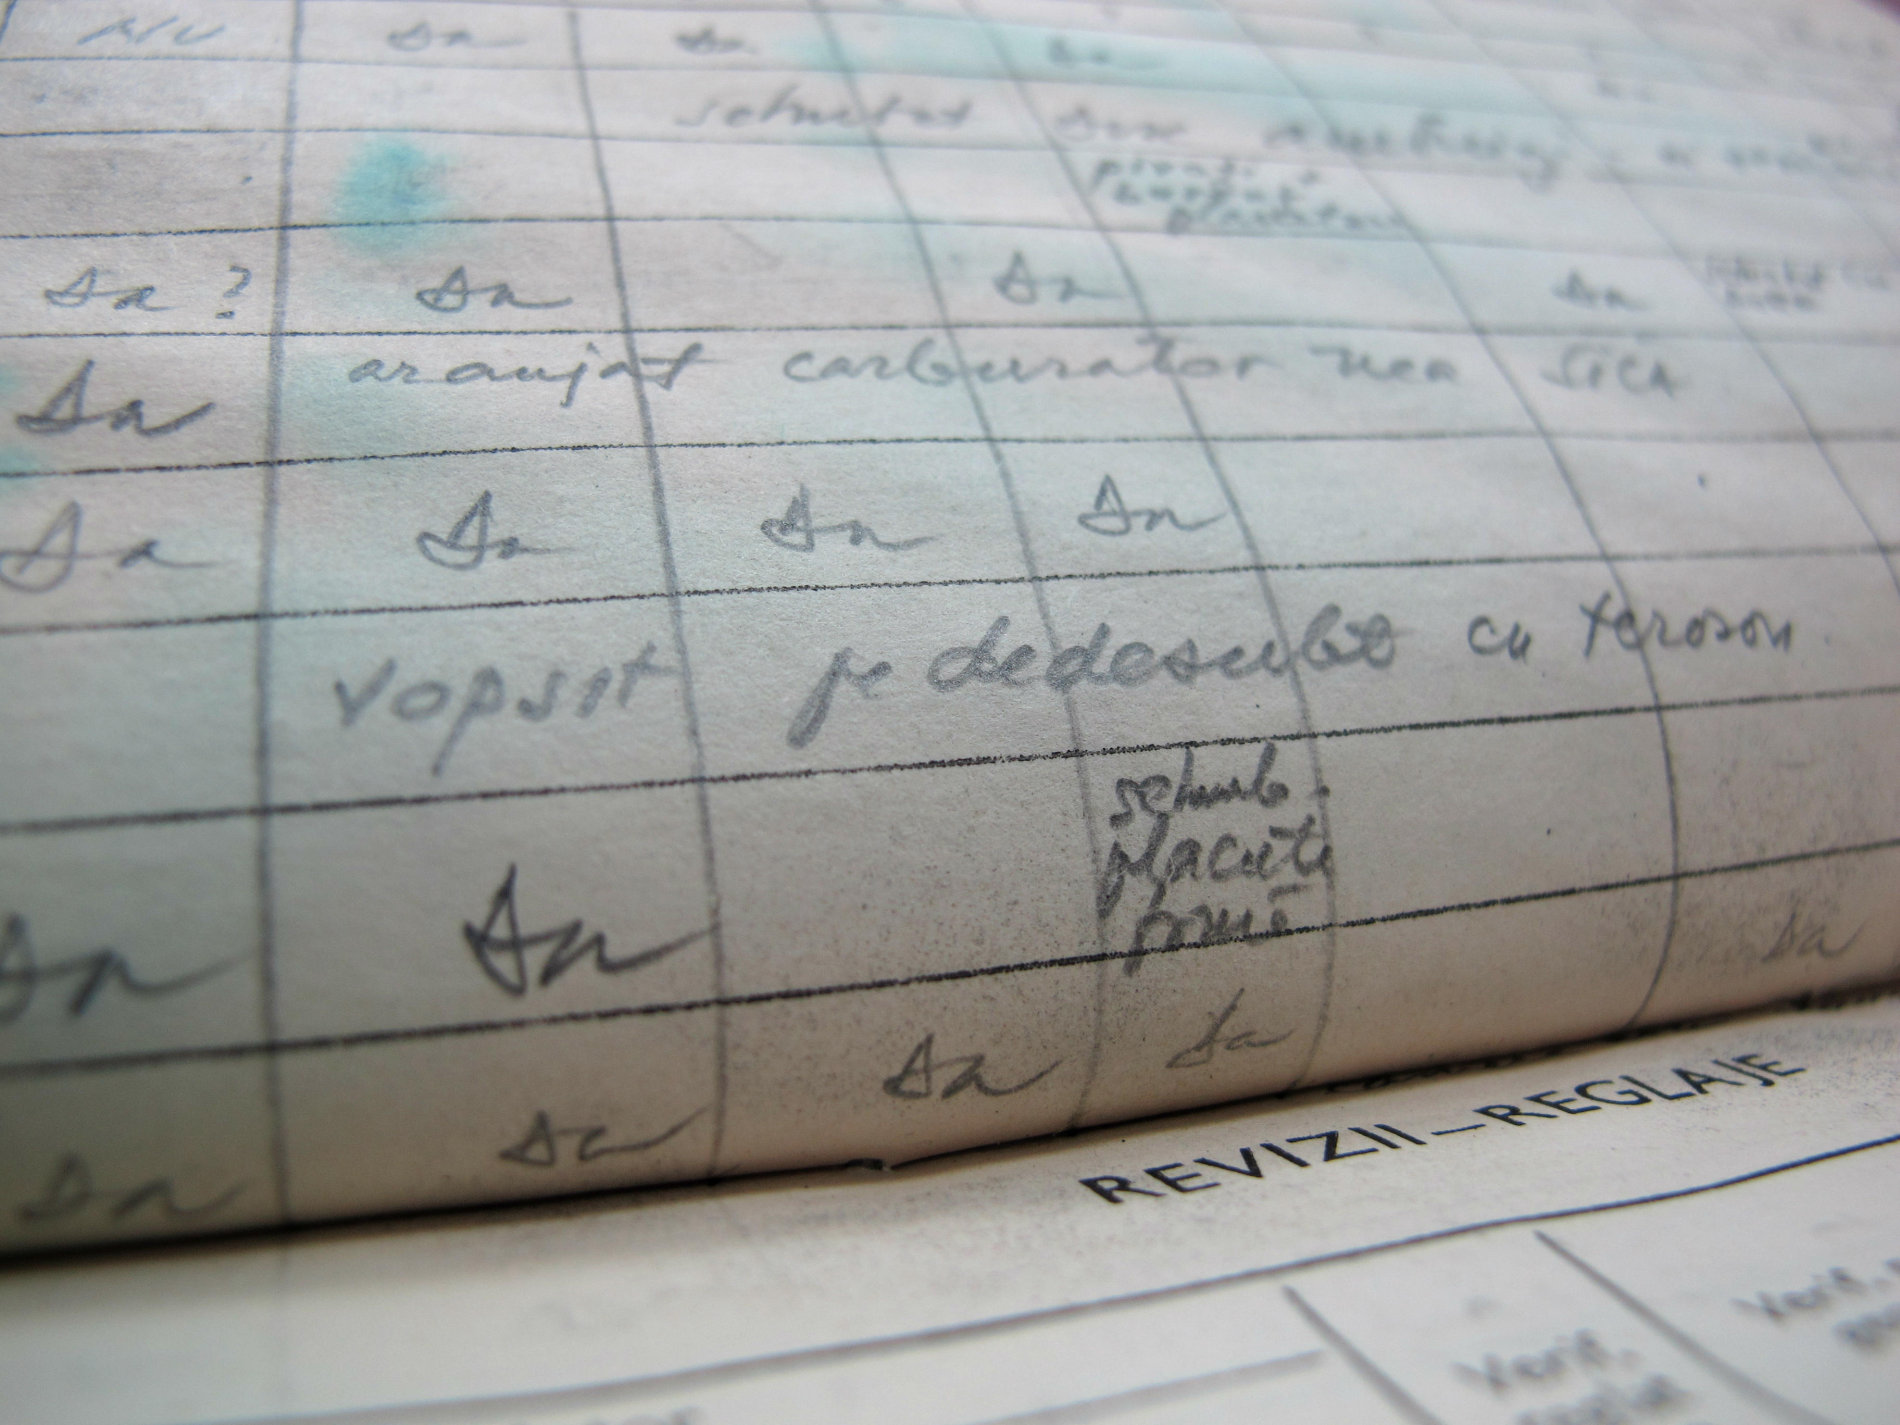 NU Da Da Da
schimbat disc ambreiaj
Da ? Da Da Da
Da aranjat carburator nea SICĂ
Da Da Da Da
vopsit pe dedesubt cu teroson
schimb.
placute
Da Da
frână
Da
Da Da Da Da
REVIZII — REGLAJE
Verif.
Verif.
reglat